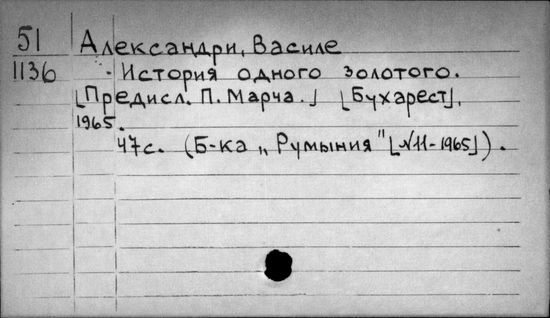 51 Александри, Василе
1136 История одного золотого.
[Предисл. П. Марча.] [Бухарест],
1965.
47с. (Б-ка „Румыния" [№11-1965]).